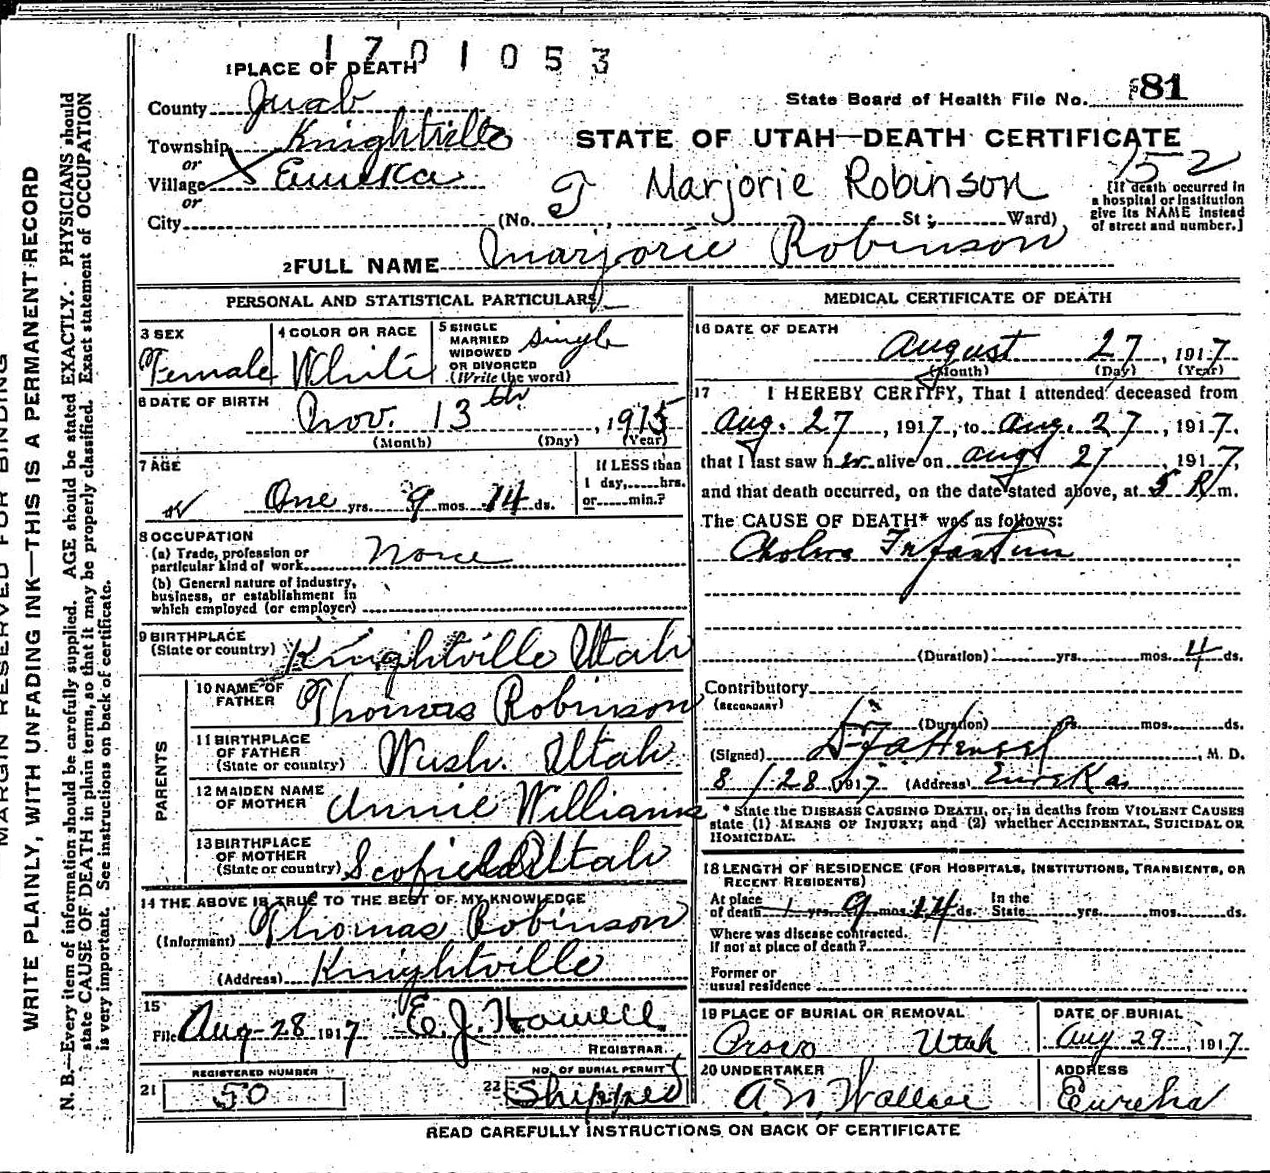 1701053
1 PLACE OF DEATH
County Juab
State Board of Health File No. 81
Township Knightville
STATE OF UTAH—DEATH CERTIFICATE
or
Village X Eureka
152
or
Marjorie Robinson
[If death occurred in
a hospital or institution
give its NAME instead
of street and number.]
City (No. St; Ward)
2 FULL NAME Marjorie Robinson
PERSONAL AND STATISTICAL PARTICULARS
3 SEX
Female
4 COLOR OR RACE
White
5 SINGLE
MARRIED
WIDOWED
OR DIVORCED
(Write the word)
Single
6 DATE OF BIRTH
Nov. 13th, 1915
(Month) (Day) (Year)
7 AGE
One yrs. 9 mos. 14 ds.
If LESS than
1 day, hrs.
or min.?
8 OCCUPATION
(a) Trade, profession or
particular kind of work None
(b) General nature of industry,
business, or establishment in
which employed (or employer)
9 BIRTHPLACE
(State or country) Knightville Utah
PARENTS
10 NAME OF
FATHER Thomas Robinson
11 BIRTHPLACE
OF FATHER
(State or country) Wash. Utah
12 MAIDEN NAME
OF MOTHER Annie Williams
13 BIRTHPLACE
OF MOTHER
(State or country) Scofield Utah
14 THE ABOVE IS TRUE TO THE BEST OF MY KNOWLEDGE
(Informant) Thomas Robinson
(Address) Knightville
15
Filed Aug-28 1917 E. J. Howell
REGISTRAR
21 REGISTERED NUMBER
50
22 NO. OF BURIAL PERMIT
Shipped
MEDICAL CERTIFICATE OF DEATH
16 DATE OF DEATH
August 27, 1917
(Month) (Day) (Year)
17 I HEREBY CERTIFY, That I attended deceased from
Aug. 27, 1917, to Aug. 27, 1917.
that I last saw her alive on Aug 27, 1917,
and that death occurred, on the date stated above, at 5 P.m.
The CAUSE OF DEATH* was as follows:
Cholera Infantum
(Duration) yrs. mos. 4 ds.
Contributory
(SECONDARY)
(Duration) yrs. mos. ds.
(Signed) Hensel, M. D.
8/28 1917 (Address) Eureka
* State the DISEASE CAUSING DEATH, or, in deaths from VIOLENT CAUSES
state (1) MEANS OF INJURY; and (2) whether ACCIDENTAL, SUICIDAL OR
HOMICIDAL.
18 LENGTH OF RESIDENCE (FOR HOSPITALS, INSTITUTIONS, TRANSIENTS, OR
RECENT RESIDENTS)
At place
of death 1 yrs. 9 mos. 14 ds.
In the
State yrs. mos. ds.
Where was disease contracted.
If not at place of death?
Former or
usual residence
19 PLACE OF BURIAL OR REMOVAL
Provo Utah
DATE OF BURIAL
Aug 29, 1917
20 UNDERTAKER
A. N. Wallace
ADDRESS
Eureka
READ CAREFULLY INSTRUCTIONS ON BACK OF CERTIFICATE
MARGIN RESERVED FOR BINDING
WRITE PLAINLY, WITH UNFADING INK—THIS IS A PERMANENT RECORD
N. B.—Every item of information should be carefully supplied. AGE should be stated EXACTLY. PHYSICIANS should
state CAUSE OF DEATH in plain terms, so that it may be properly classified. Exact statement of OCCUPATION
is very important. See instructions on back of certificate.